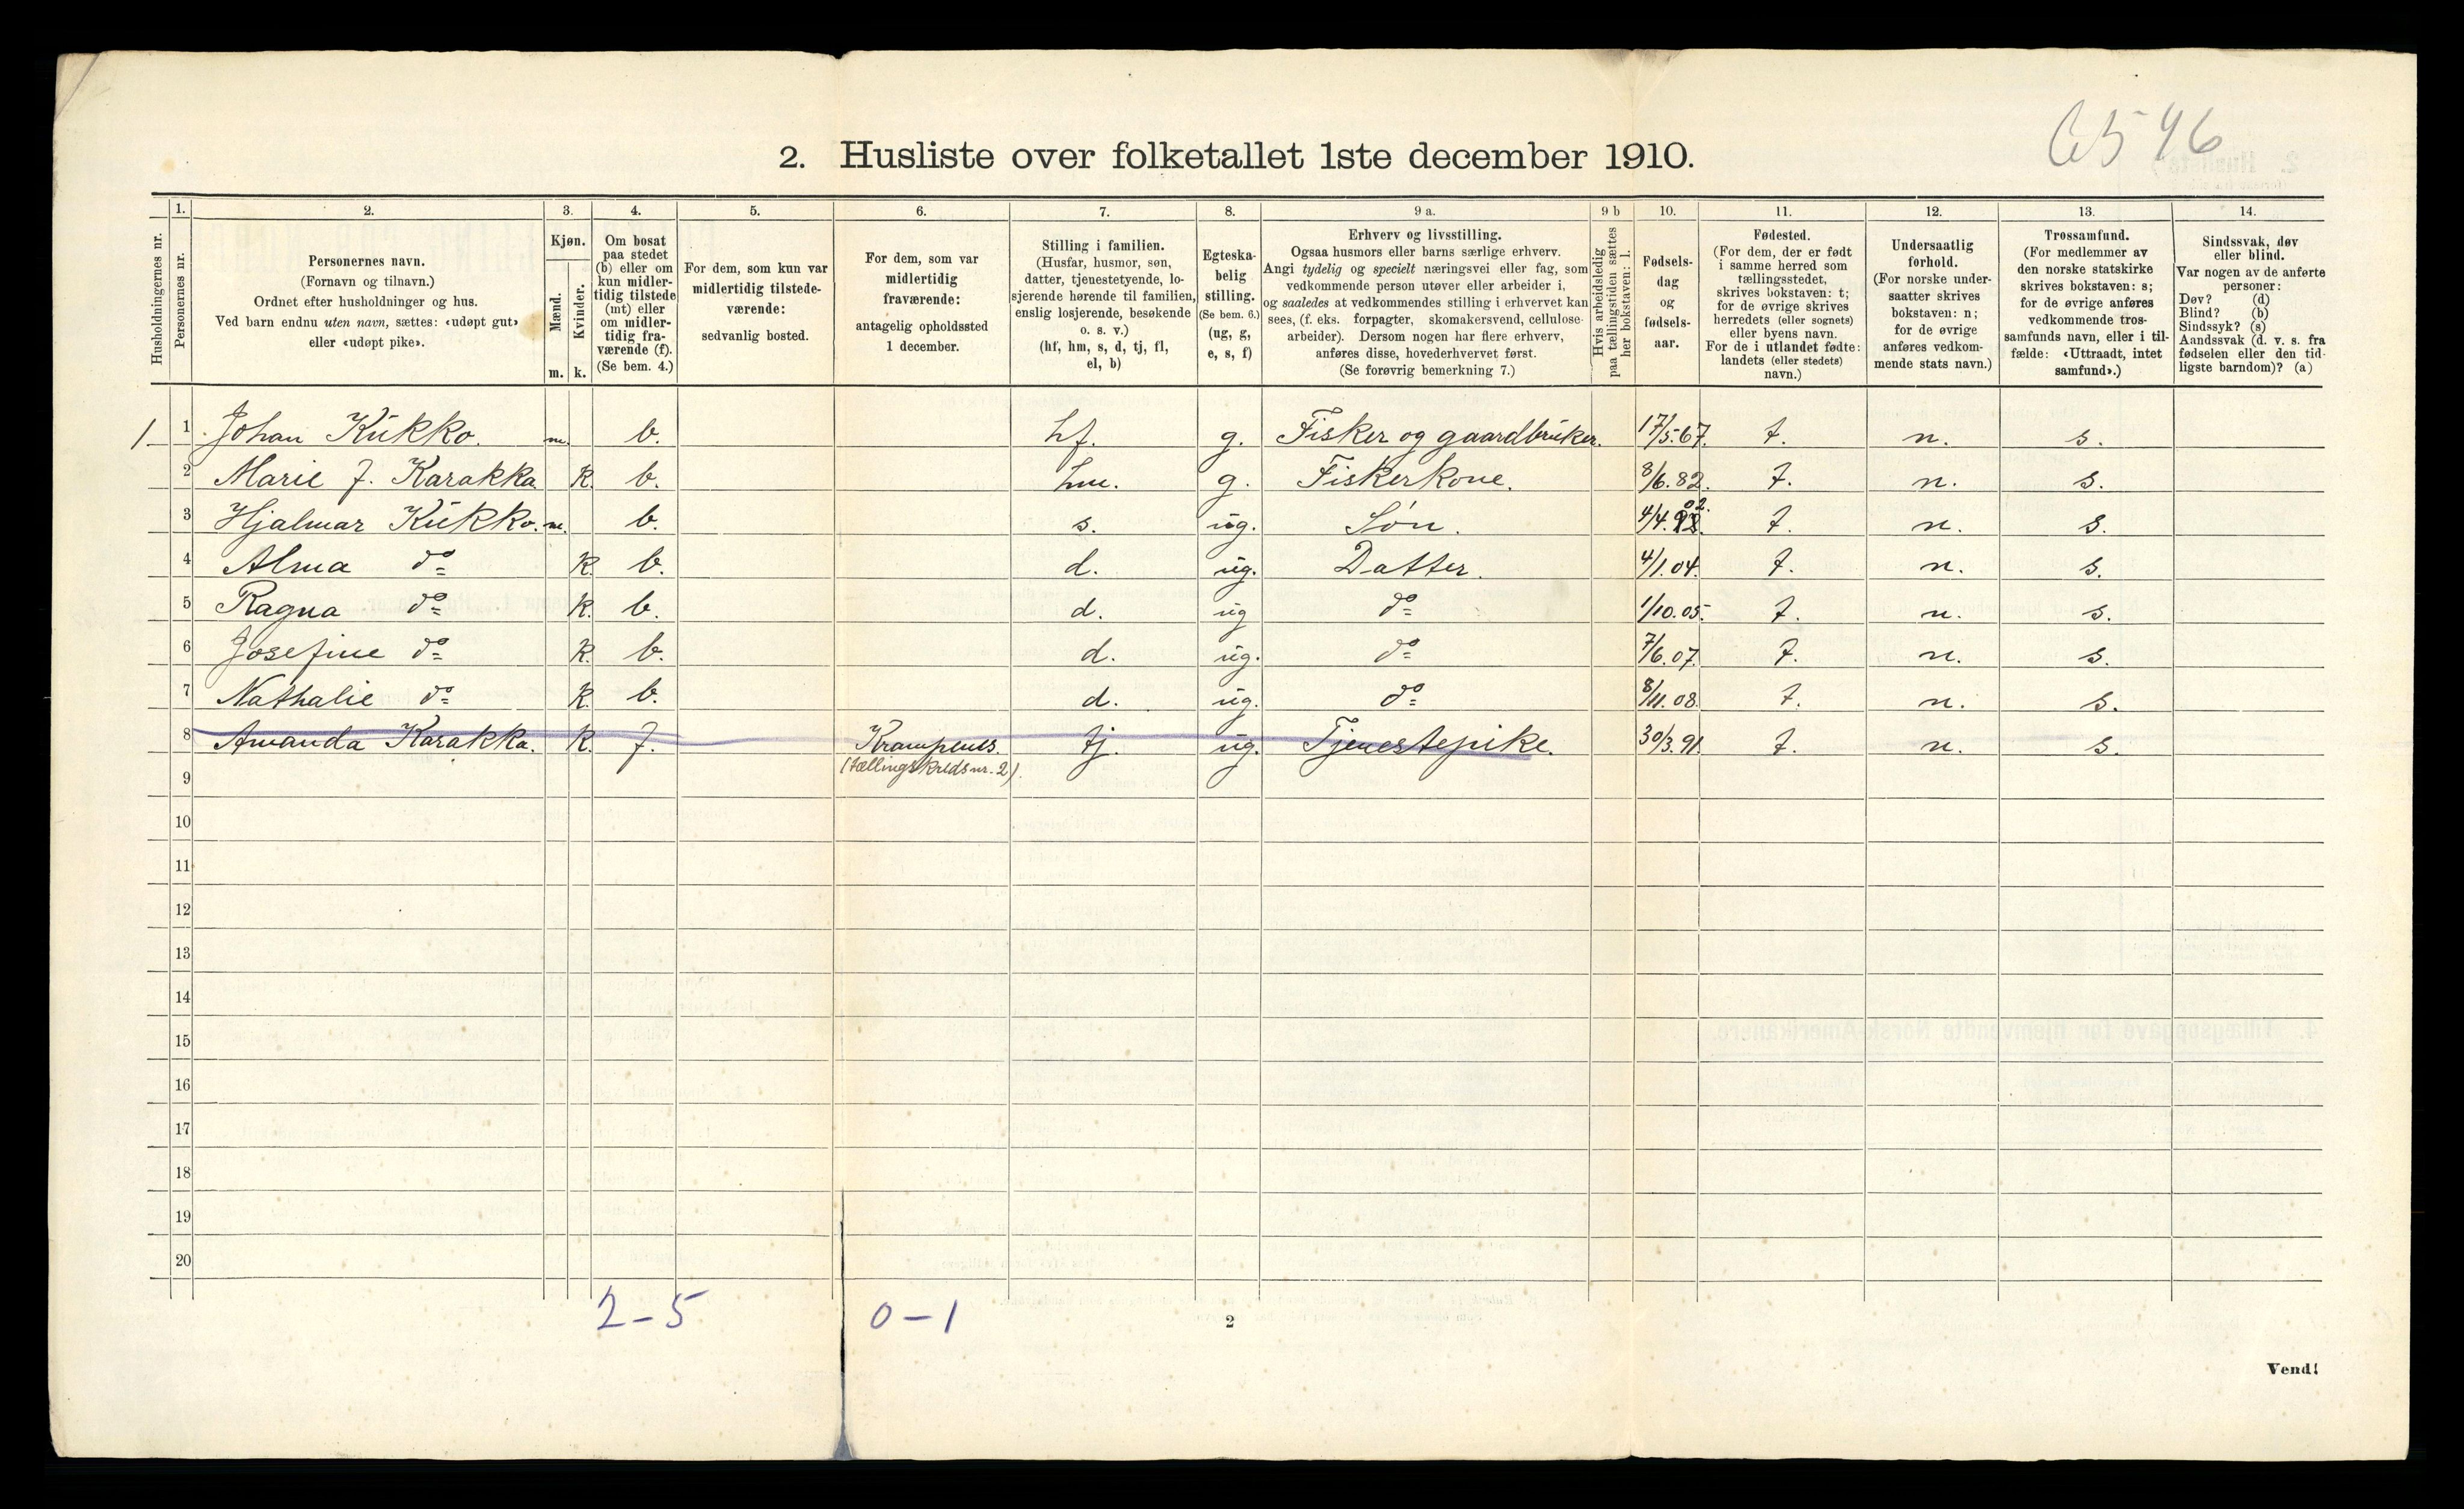 6546
2. Husliste over folketallet 1ste december 1910.
Husholdningernes nr.
1.
Personernes nr.
2.
Personernes navn.
(Fornavn og tilnavn.)
Ordnet efter husholdninger og hus.
Ved barn endnu uten navn, sættes: «udøpt gut»
eller «udøpt pike».
3.
Kjøn.
Mænd.
Kvinder.
m. k.
4.
Om bosat
paa stedet
(b) eller om
kun midler-
tidig tilstede
(mt) eller
om midler-
tidig fra-
værende (f).
(Se bem. 4.)
5.
For dem, som kun var
midlertidig tilstede-
værende:
sedvanlig bosted.
6.
For dem, som var
midlertidig
fraværende:
antagelig opholdssted
1 december.
7.
Stilling i familien.
(Husfar, husmor, søn,
datter, tjenestetyende, lo-
sjerende hørende til familien,
enslig losjerende, besøkende
o. s. v.)
(hf, hm, s, d, tj, fl,
el, b)
8.
Egteska-
belig
stilling.
(Se bem. 6.)
(ug, g,
e, s, f)
9 a.
Erhverv og livsstilling.
Ogsaa husmors eller barns særlige erhverv.
Angi tydelig og specielt næringsvei eller fag, som
vedkommende person utøver eller arbeider i,
og saaledes at vedkommendes stilling i erhvervet kan
sees, (f. eks. forpagter, skomakersvend, cellulose-
arbeider). Dersom nogen har flere erhverv,
anføres disse, hovederhvervet først.
(Se forøvrig bemerkning 7.)
9 b
Hvis arbeidsledig
paa tællingstiden sættes
her bokstaven: l.
10.
Fødsels-
dag
og
fødsels-
aar.
11.
Fødested.
(For dem, der er født
i samme herred som
tællingsstedet,
skrives bokstaven: t;
for de øvrige skrives
herredets (eller sognets)
eller byens navn.
For de i utlandet fødte:
landets (eller stedets)
navn.)
12.
Undersaatlig
forhold.
(For norske under-
saatter skrives
bokstaven: n;
for de øvrige
anføres vedkom-
mende stats navn.)
13.
Trossamfund.
(For medlemmer av
den norske statskirke
skrives bokstaven: s;
for de øvrige anføres
vedkommende tros-
samfunds navn, eller i til-
fælde: «Uttraadt, intet
samfund».)
14.
Sindssvak, døv
eller blind.
Var nogen av de anførte
personer:
Døv? (d)
Blind? (b)
Sindssyk? (s)
Aandssvak (d. v. s. fra
fødselen eller den tid-
ligste barndom)? (a)
1 1 Johan Kukko. m. b. hf. g. Fisker og gaardbruker. 17/5.67. t. n. s.
2 Marie J. Karakka k. b. hm. g. Fiskerkone. 8/6.82. t. n. s.
3 Hjalmar Kukko. m. b. s. ug. Søn. 4/4.02. t. n. s.
4 Alma do k. b. d. ug. Datter. 4/1.04. t. n. s.
5 Ragna do k. b. d. ug do 1/10.05. t. n. s.
6 Josefine do k. b. d. ug. do 7/6.07. t. n. s.
7 Nathalie do k. b. d. ug. do 8/11.08. t. n. s.
8 Amanda Karakka. k. f. Krampenes. tj. ug. Tjenestepike. 30/3.91. t. n. s.
(tællingskreds nr. 2).
9
10
11
12
13
14
15
16
17
18
19
20
2-5 0-1
2
Vend!